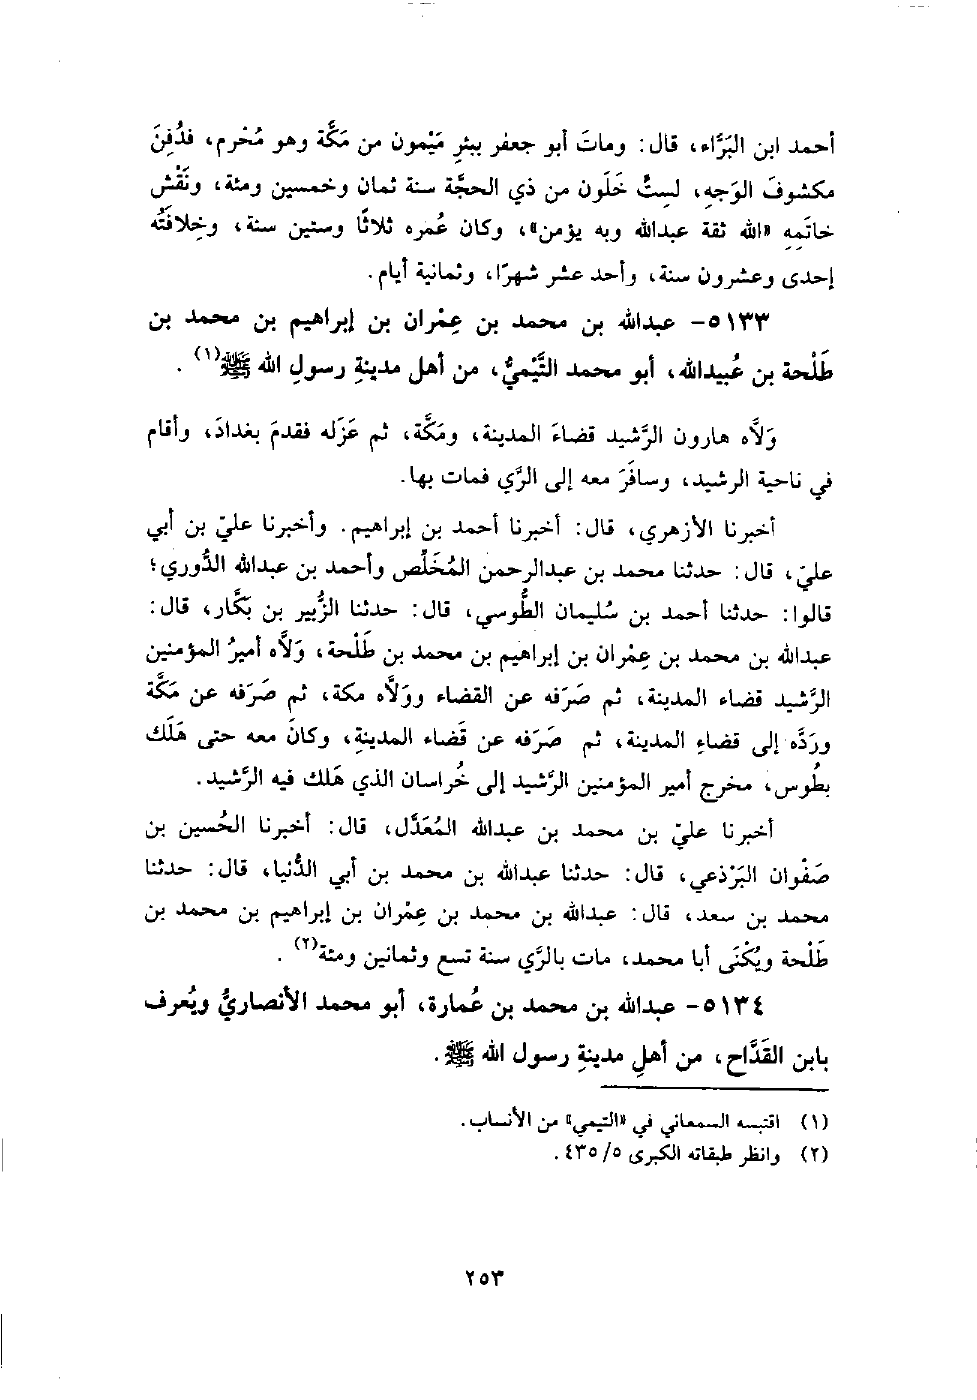 أحمد ابن البَرَّاء، قال: وماتَ أبو جعفر ببئرِ مَيْمون من مَكَّة وهو مُحْرم، فدُفِنَ
مكشوفَ الوَجهِ، لستٍّ خَلَون من ذي الحجَّة سنة ثمان وخمسين ومئة، ونَقْش
خاتَمِهِ «الله ثقة عبدالله وبه يؤمن»، وكان عُمره ثلاثًا وستين سنة، وخِلافَتُه
إحدى وعشرون سنة، وأحد عشر شهرًا، وثمانية أيام.
٥١٣٣- عبدالله بن محمد بن عِمْران بن إبراهيم بن محمد بن
طَلْحة بن عُبيدالله، أبو محمد التَّيْميُّ، من أهل مدينةِ رسولِ الله ﷺ(١).
وَلَّاه هارون الرَّشيد قضاءَ المدينة، ومَكَّة، ثم عَزَله فقدمَ بغدادَ، وأقام
في ناحية الرشيد، وسافَرَ معه إلى الرَّي فمات بها.
أخبرنا الأزهري، قال: أخبرنا أحمد بن إبراهيم. وأخبرنا عليّ بن أبي
عليّ، قال: حدثنا محمد بن عبدالرحمن المُخَلِّص وأحمد بن عبدالله الدُّوري؛
قالوا: حدثنا أحمد بن سُليمان الطُّوسي، قال: حدثنا الزُّبير بن بَكَّار، قال:
عبدالله بن محمد بن عِمْران بن إبراهيم بن محمد بن طَلْحة، وَلَّاه أميرُ المؤمنين
الرَّشيد قضاء المدينة، ثم صَرَفه عن القضاء وولَّاه مكة، ثم صَرَفه عن مَكَّة
ورَدَّه إلى قضاءِ المدينة، ثم صَرَفه عن قَضاء المدينةِ، وكانَ معه حتى هَلَك
بطُوس، مخرج أمير المؤمنين الرَّشيد إلى خُراسان الذي هَلك فيه الرَّشيد.
أخبرنا عليّ بن محمد بن عبدالله المُعَدَّل، قال: أخبرنا الحُسين بن
صَفْوان البَرْذعي، قال: حدثنا عبدالله بن محمد بن أبي الدُّنيا، قال: حدثنا
محمد بن سعد، قال: عبدالله بن محمد بن عِمْران بن إبراهيم بن محمد بن
طَلْحة ويُكْنَى أبا محمد، مات بالرَّي سنة تسع وثمانين ومئة(٢).
٥١٣٤- عبدالله بن محمد بن عُمارة، أبو محمد الأنصاريُّ ويُعرف
بابن القَدَّاح، من أهلِ مدينةِ رسول الله ﷺ.
(١) اقتبسه السمعاني في «التيمي» من الأنساب.
(٢) وانظر طبقاته الكبرى ٥/ ٤٣٥.
٢٥٣